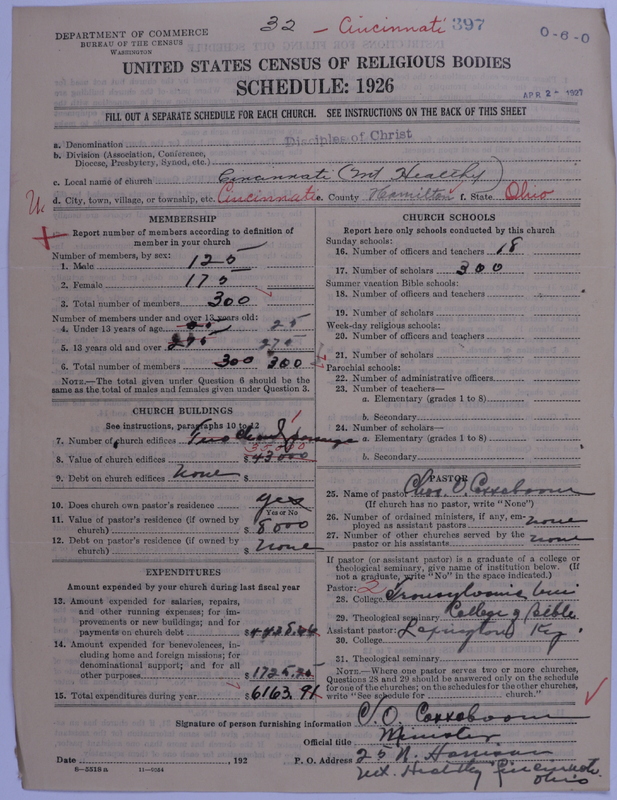 32 - Cincinnati 397 0-6-0
DEPARTMENT OF COMMERCE
BUREAU OF THE CENSUS
WASHINGTON
UNITED STATES CENSUS OF RELIGIOUS BODIES
SCHEDULE: 1926
APR 2 - 1927
FILL OUT A SEPARATE SCHEDULE FOR EACH CHURCH. SEE INSTRUCTIONS ON THE BACK OF THIS SHEET
a. Denomination Disciples of Christ
b. Division (Association, Conference,
Diocese, Presbytery, Synod, etc.)
c. Local name of church Cincinnati (Mt Healthy)
d. City, town, village, or township, etc. Cincinnati e. County Hamilton f. State Ohio
MEMBERSHIP
Report number of members according to definition of
member in your church
Number of members, by sex:
1. Male 125
2. Female 175
3. Total number of members 300
Number of members under and over 13 years old:
4. Under 13 years of age 25 25
5. 13 years old and over 275 275
6. Total number of members 300 300
NOTE.—The total given under Question 6 should be the
same as the total of males and females given under Question 3.
CHURCH BUILDINGS
See instructions, paragraphs 10 to 12
7. Number of church edifices Two
8. Value of church edifices $ 43000
9. Debt on church edifices None $
10. Does church own pastor's residence yes
Yes or No
11. Value of pastor's residence (if owned by
church) $ 8000
12. Debt on pastor's residence (if owned by
church) $ None
EXPENDITURES
Amount expended by your church during last fiscal year
13. Amount expended for salaries, repairs,
and other running expenses; for im-
provements or new buildings; and for
payments on church debt $
14. Amount expended for benevolences, in-
cluding home and foreign missions; for
denominational support; and for all
other purposes $
15. Total expenditures during year $ 6163.91
CHURCH SCHOOLS
Report here only schools conducted by this church
Sunday schools:
16. Number of officers and teachers 18
17. Number of scholars 300
Summer vacation Bible schools:
18. Number of officers and teachers
19. Number of scholars
Week-day religious schools:
20. Number of officers and teachers
21. Number of scholars
Parochial schools:
22. Number of administrative officers
23. Number of teachers—
a. Elementary (grades 1 to 8)
b. Secondary
24. Number of scholars—
a. Elementary (grades 1 to 8)
b. Secondary
PASTOR
25. Name of pastor Chas. O. Cossaboom
(If church has no pastor, write "None")
26. Number of ordained ministers, if any, em-
ployed as assistant pastors none
27. Number of other churches served by the
pastor or his assistants none
If pastor (or assistant pastor) is a graduate of a college or
theological seminary, give name of institution below. (If
not a graduate, write "No" in the space indicated.)
Pastor: 2
28. College Transylvania Uni
29. Theological seminary College of Bible
Assistant pastor: Lexington Ky.
30. College
31. Theological seminary
NOTE.—Where one pastor serves two or more churches,
Questions 28 and 29 should be answered only on the schedule
for one of the churches; on the schedules for the other churches,
write "See schedule for church."
Signature of person furnishing information C. O. Cossaboom
Official title Minister
Date , 192 P. O. Address 25 N. Harrison
Mt. Healthy Cincinnati.
Ohio
8—5518 a 11—9064